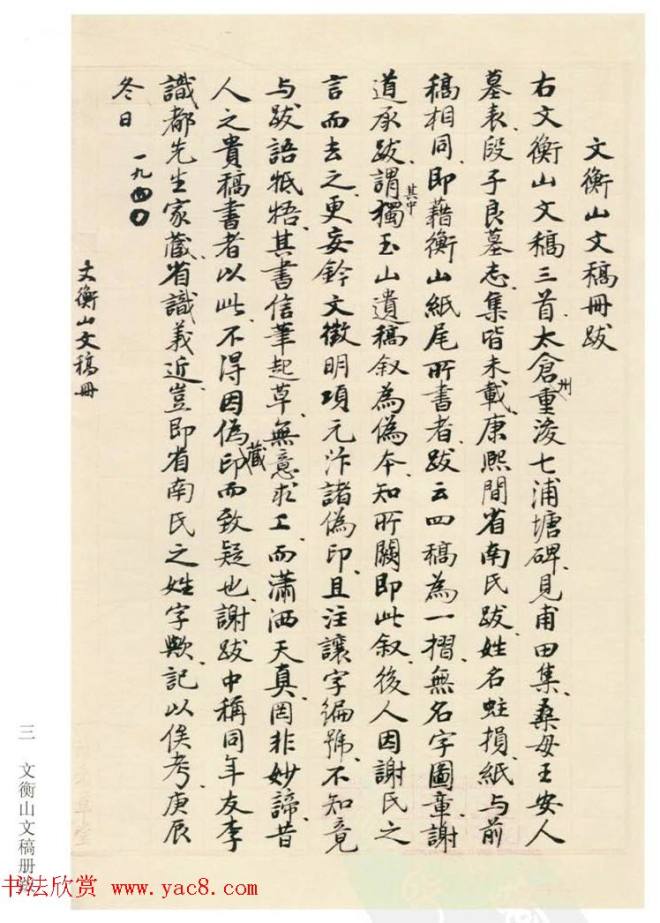 文衡山文稿冊跋
右文衡山文稿三首太倉州重浚七浦塘碑見甫田集桑母王安人
墓表段子良墓志集皆未載康熙間省南氏跋姓名蛀損紙与前
稿相同即藉衡山紙尾所書者跋云四稿為一摺無名字圖章謝
道承跋謂其中獨玉山遺稿叙為偽本知所闕即此叙後人因謝氏之
言而去之更妄鈐文徵明項元汴諸偽印且注讓字編號不知竟
与跋語牴牾其書信筆起草無意求工而瀟洒天真罔非妙諦昔
人之貴稿書者以此不得因偽藏印而致疑也謝跋中稱同年友李
識都先生家藏省識義近豈即省南氏之姓字歟記以俟考庚辰
冬日 一九四〇
文衡山文稿冊
三 文衡山文稿册跋
书法欣赏 www.yac8.com